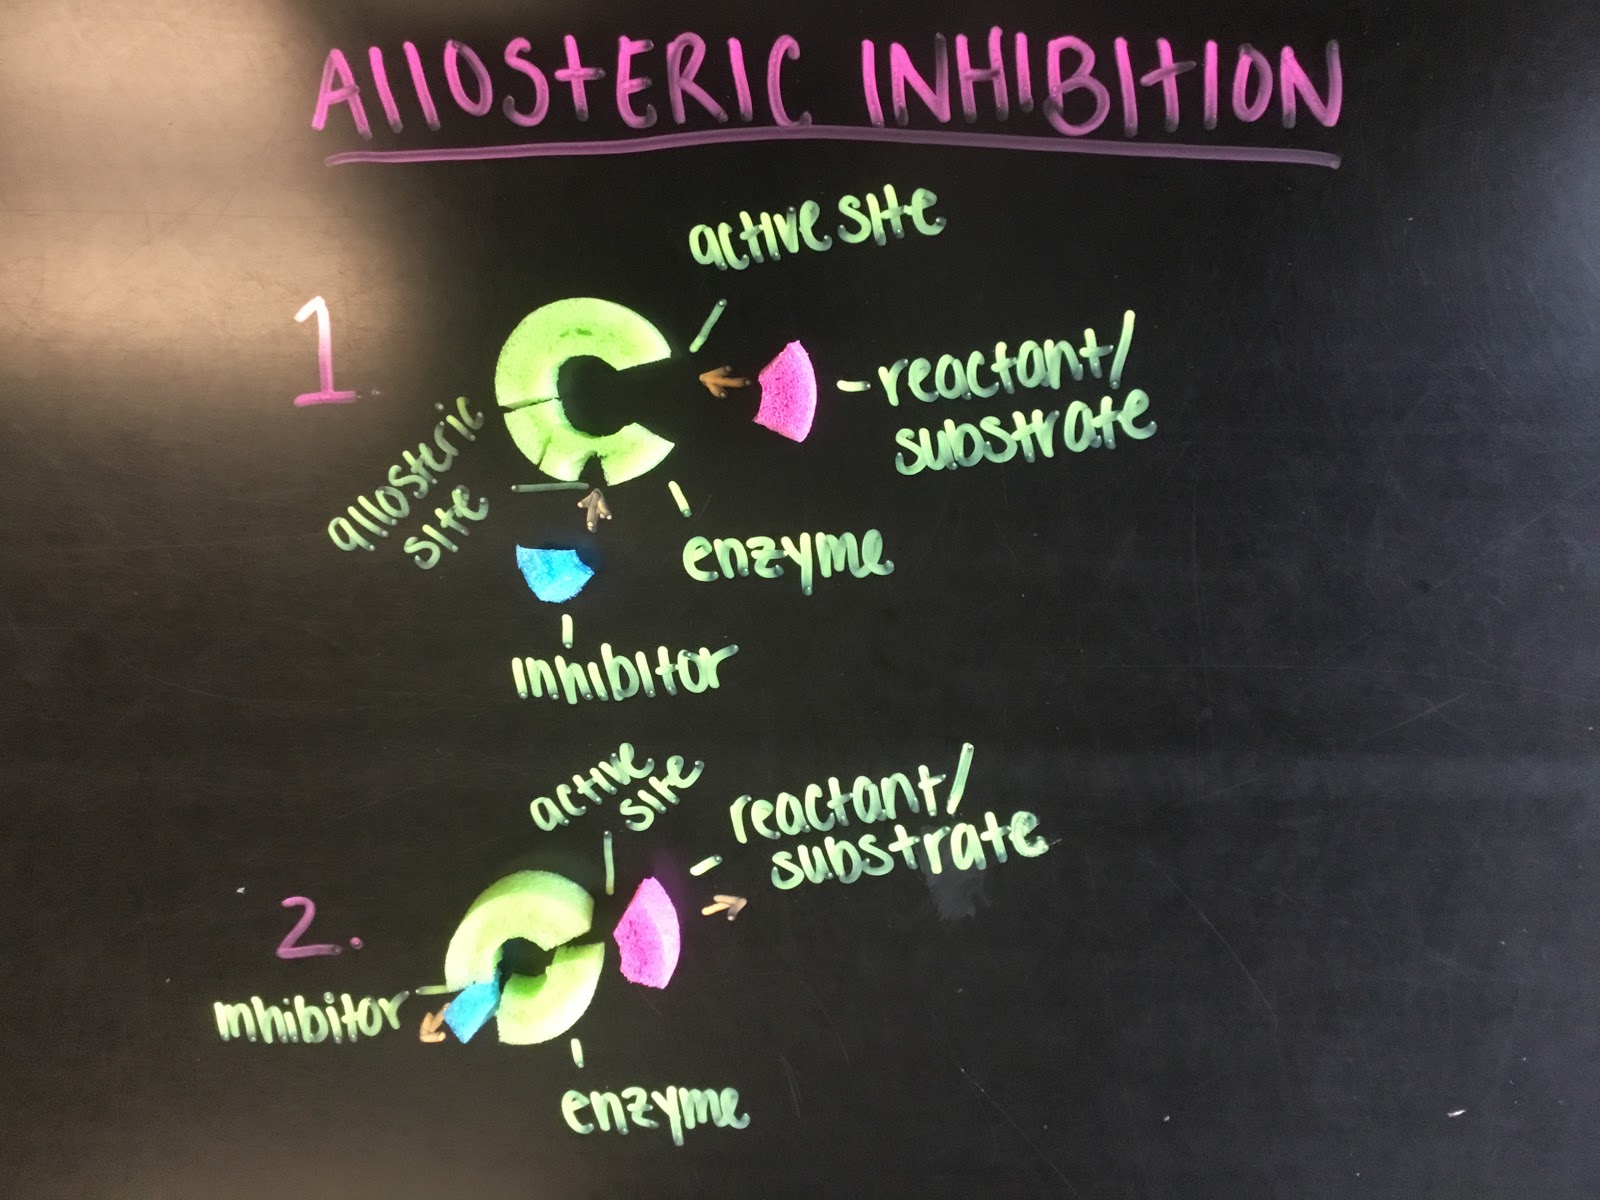 AllOSTERIC INHIBITION
active site
1.
reactant/
substrate
allosteric
site
enzyme
inhibitor
active
site
reactant/
substrate
2.
inhibitor
enzyme